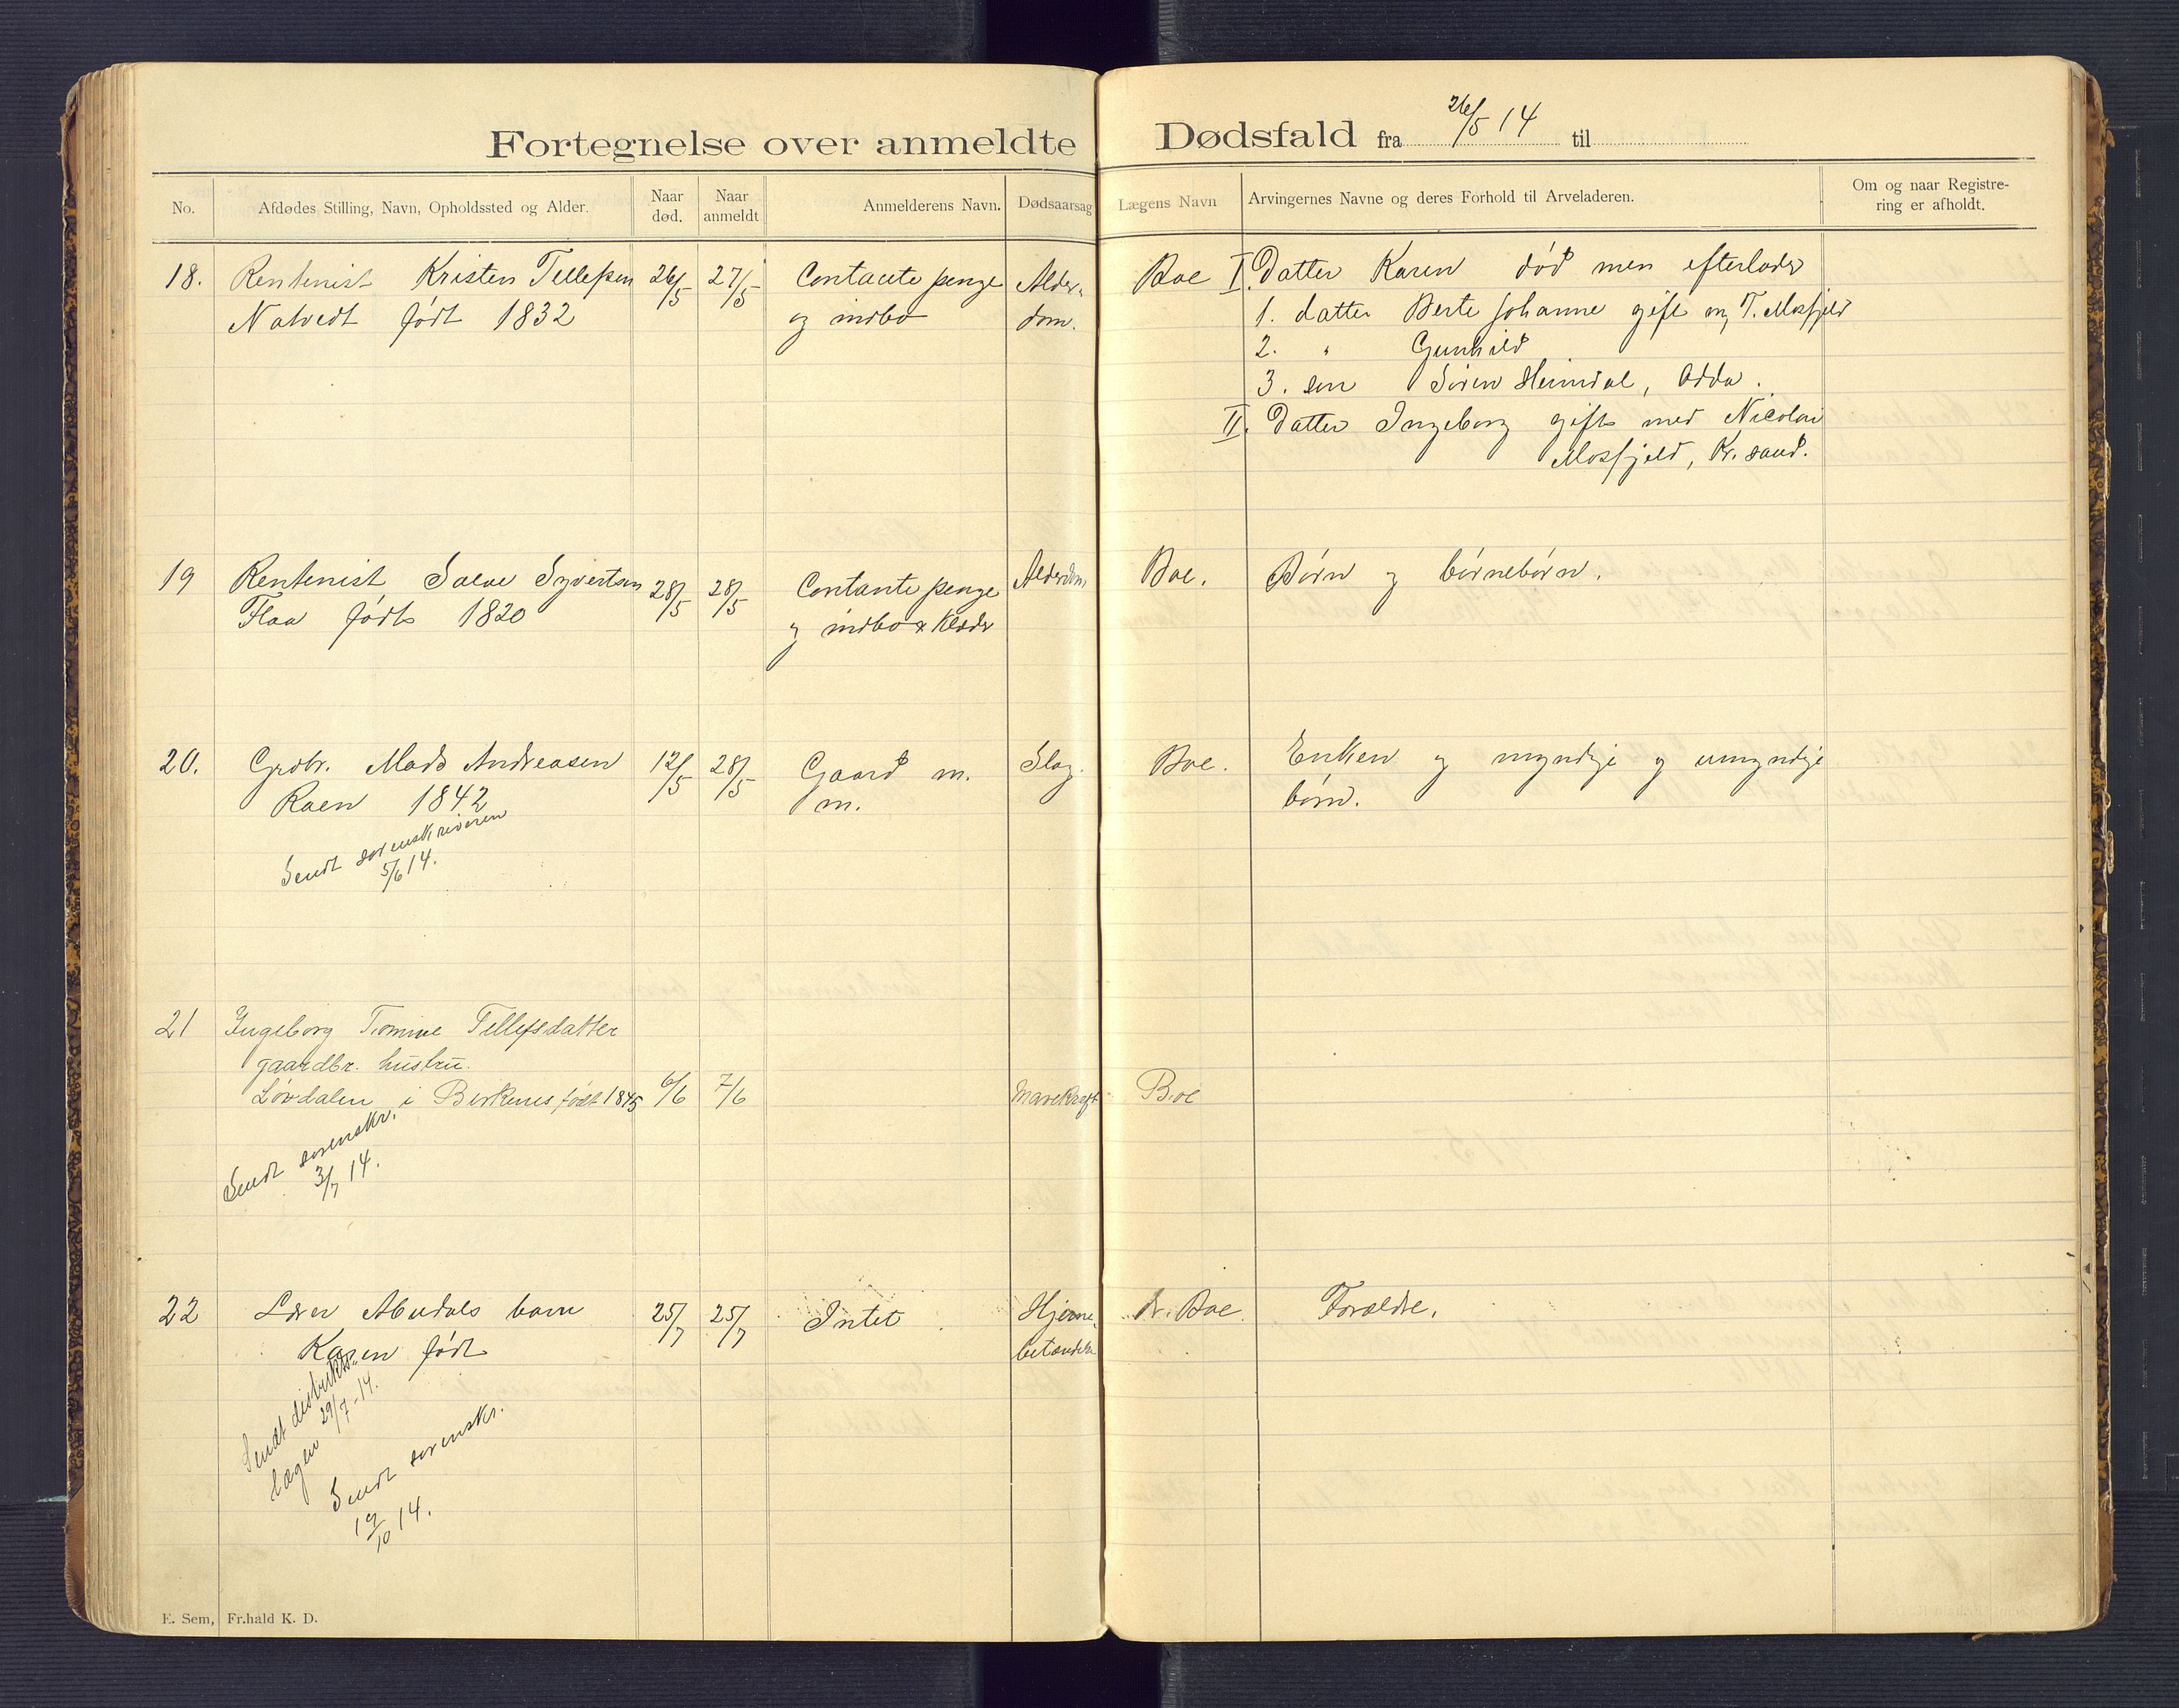 Fortegnelse over anmeldte Dødsfald fra 26/5 14 til
No.
Afdødes Stilling, Navn, Opholdssted og Alder.
Naar død.
Naar anmeldt
Anmelderens Navn.
Dødsaarsag
Lægens Navn
Arvingernes Navne og deres Forhold til Arveladeren.
Om og naar Registre-
ring er afholdt.
18. Rentenist Kristen Tellefsen 26/5 27/5 Contante penge Alder- Boe I. Datter Karen død men efterlader
Natvedt født 1832 og indbo dom. 1. datter Berte Johanne gift m, T. Mosfjeld
2. " Gunhild
3. søn Søren Heimdal, Odda.
II. Datter Ingeborg gift med Nicolai
Mosfjeld, Kr.sand.
19 Rentenist Salve Syvertsen 28/5 28/5 Contante penge Alderdom Boe. Børn og børnebørn.
Flaa født 1820 og indbo & Klæder
20. Grdbr. Mads Andreasen 12/5 28/5 Gaard m. Slag. Boe. Enken og myndige og umyndige
Raen 1842 m. børn.
Sendt sorenskriveren
5/6 14.
21 Ingeborg Tomine Tellefsdatter
gaardbr. hustru.
Løvdalen i Birkenes født 1845 6/6 7/6 Mavekræft Boe
Sendt sorenskr.
3/7 14.
22 Lærer Abusdals barn 25/7 25/7 Intet Hjerne- Dr. Boe. Forældre.
Karen født betændelse
Sendt distrikts-
lægen 29/7-14.
Sendt sorenskr.
19/10 14.
E. Sem, Fr.hald K. D.